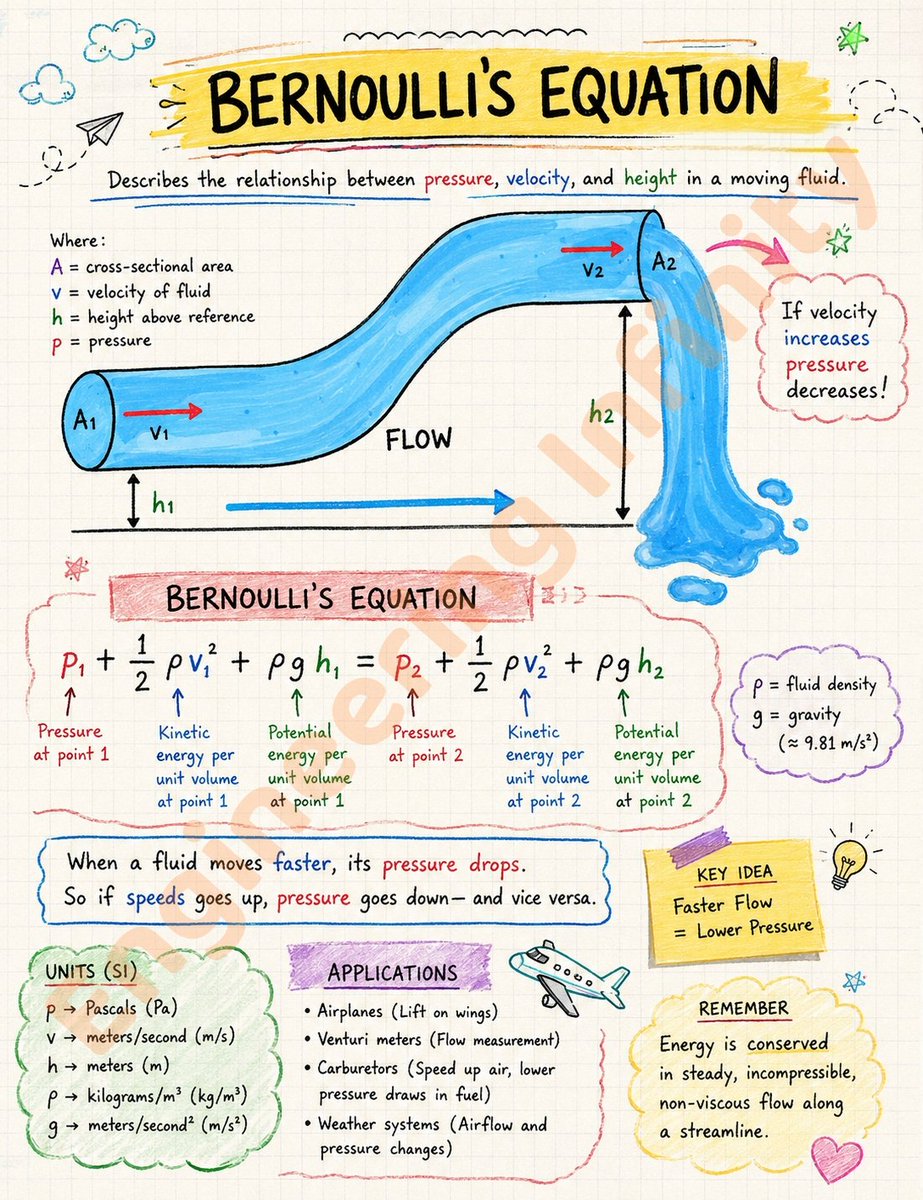 BERNOULLI'S EQUATION
Describes the relationship between pressure, velocity, and height in a moving fluid.
Where:
A = cross-sectional area
v = velocity of fluid
h = height above reference
p = pressure
A1
v1
h1
FLOW
v2
A2
h2
If velocity
increases
pressure
decreases!
BERNOULLI'S EQUATION
p₁ + 1/2 ρv₁² + ρgh₁ = p₂ + 1/2 ρv₂² + ρgh₂
Pressure
at point 1
Kinetic
energy per
unit volume
at point 1
Potential
energy per
unit volume
at point 1
Pressure
at point 2
Kinetic
energy per
unit volume
at point 2
Potential
energy per
unit volume
at point 2
ρ = fluid density
g = gravity
(≈ 9.81 m/s²)
When a fluid moves faster, its pressure drops.
So if speeds goes up, pressure goes down— and vice versa.
KEY IDEA
Faster Flow
= Lower Pressure
UNITS (SI)
p → Pascals (Pa)
v → meters/second (m/s)
h → meters (m)
ρ → kilograms/m³ (kg/m³)
g → meters/second² (m/s²)
APPLICATIONS
• Airplanes (Lift on wings)
• Venturi meters (Flow measurement)
• Carburetors (Speed up air, lower
pressure draws in fuel)
• Weather systems (Airflow and
pressure changes)
REMEMBER
Energy is conserved
in steady, incompressible,
non-viscous flow along
a streamline.
Engineering Infinity